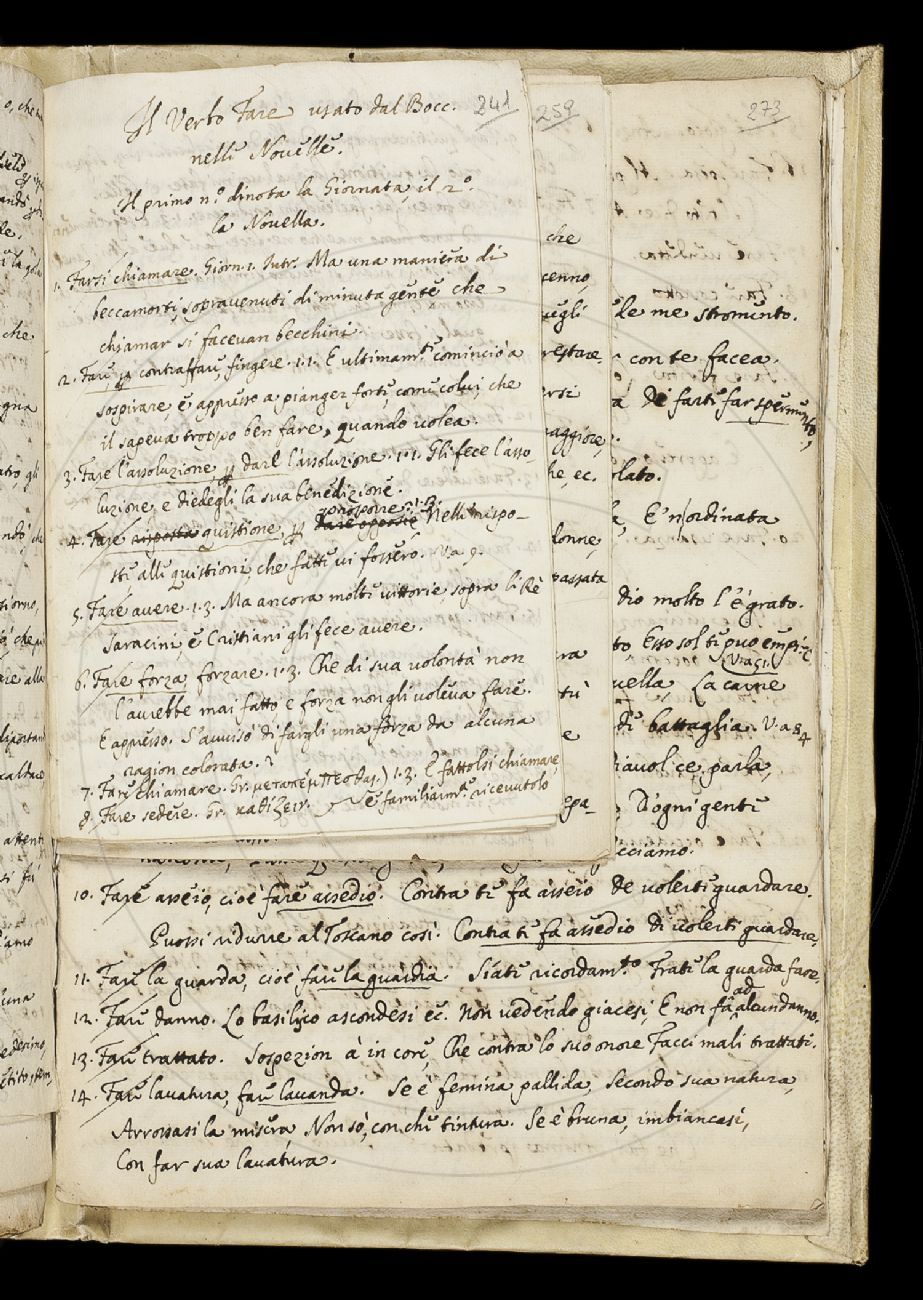 241
Il Verbo Fare usato dal Bocc.
nelle Novelle.
Il primo n.º dinota la Giornata, il 2.º
la Novella.
1. Farsi chiamare. Giorn. 1. Intr. Ma una maniera di
beccamorti sopravenuti di minuta gente che
chiamar si facevan becchini
2. Fare p contraffare, fingere. 1.1. E ultimam.te cominciò a
sospirare e appresso a pianger forte, come colui, che
il sapeva troppo ben fare, quando volea.
3. Fare l'assoluzione p dare l'assoluzione. 1.1. Gli fece l'asso-
luzione, e diedegli la sua benedizione.
4. Fare risposta quistione p proporre. 1.3. Nelle rispo-
ste alle quistioni, che fatte vi fossero. Va 9.
5. Fare avere. 1.3. Ma ancora molte vittorie sopra li Rè
Saracini, e Cristiani gli fece avere.
6. Fare forza, forzare. 1.3. Che di sua volontà non
l'avrebbe mai fatto e forza non gli voleva fare.
E appresso. S'avvisò di fargli una forza da alcuna
ragion colorata.
7. Fare chiamare. Gr. 1.3. E fattolsi chiamare,
8. Fare sedere. Gr. καθίζειν. e familiarm.te ricevutolo
259
che
cenno,
restare
ersi
maggiore,
he, ec.
donne,
passata
tù
e
273
le me stromento.
con te facea.
a di farti far spermento,
olato.
E' n'ordinata
dio molto l'è grato.
to, Esso sol ti può empire
vella, La carne
di battaglia. V. a 84
iavol ce parla,
D'ogni gente
cciamo.
10. Fare asseio, cioè fare assedio. Contra te fa asseio de volerti guardare.
Puossi ridurre al Toscano così. Contra te fa assedio di volerti guardare.
11. Fare la guarda, cioè fare la guardia. Siati ricordam.to Frate la guarda fare.
12. Fare danno. Lo basilisco ascondesi ec. Non vedendo giacesi, E non fa ad alcun danno.
13. Fare trattato. Sospezion à in core, Che contra lo suo onore Facci mali trattati.
14. Fare lavatura, fare lavanda. Se è femina pallida, Secondo sua natura,
Arrossasi la misera Non so, con che tintura. Se è bruna, imbiancasi,
Con far sua lavatura.